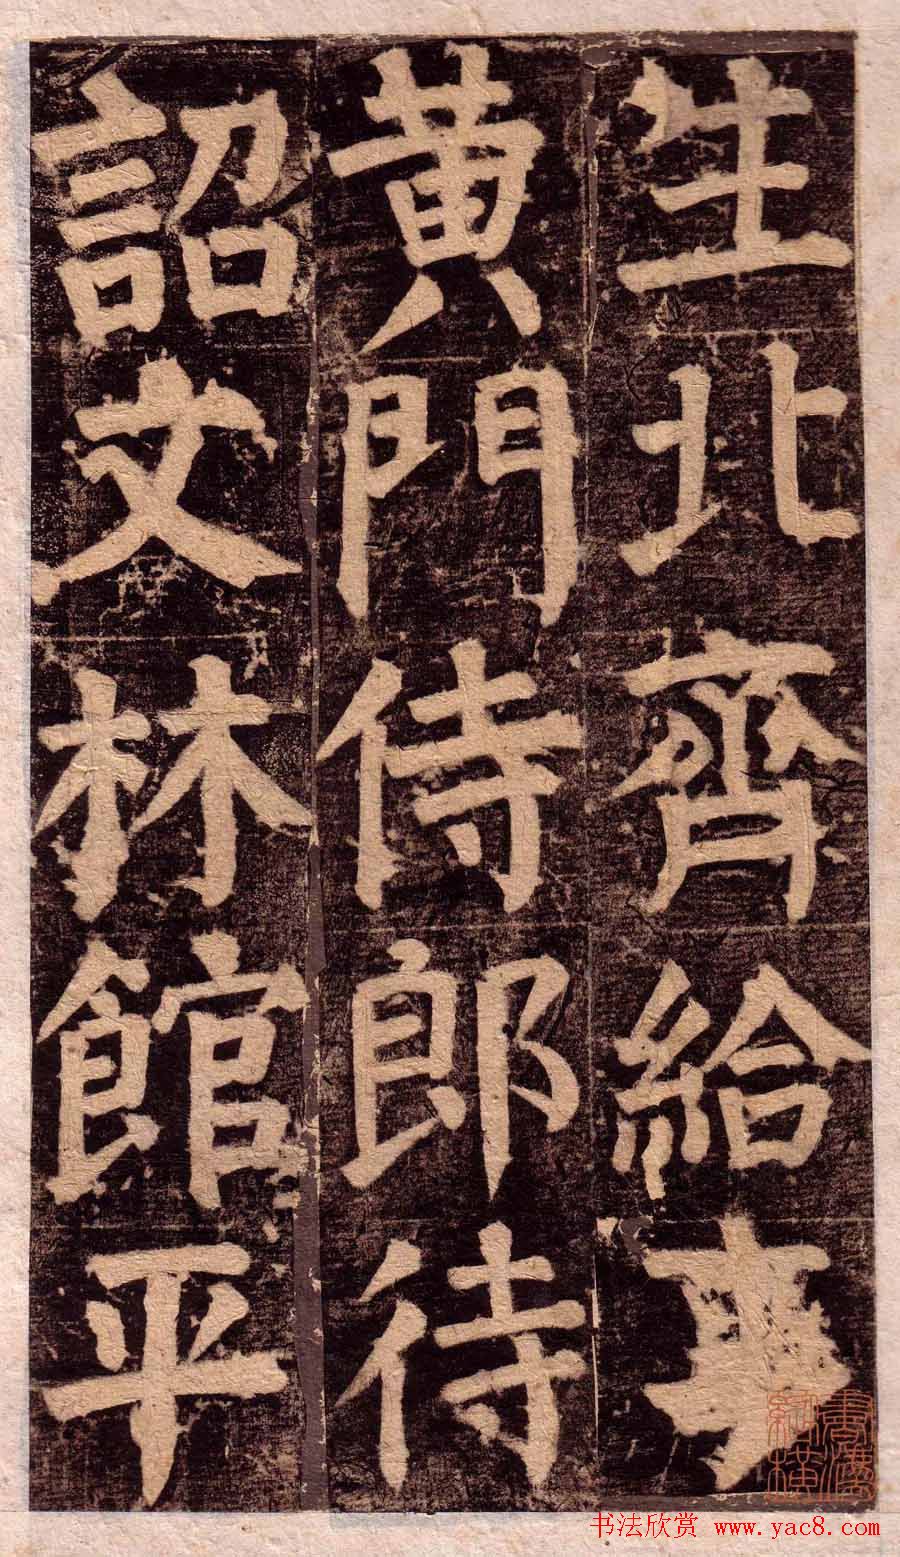 生北齊給事
黄門侍郎待
詔文林館平
书法欣赏 www.yac8.com